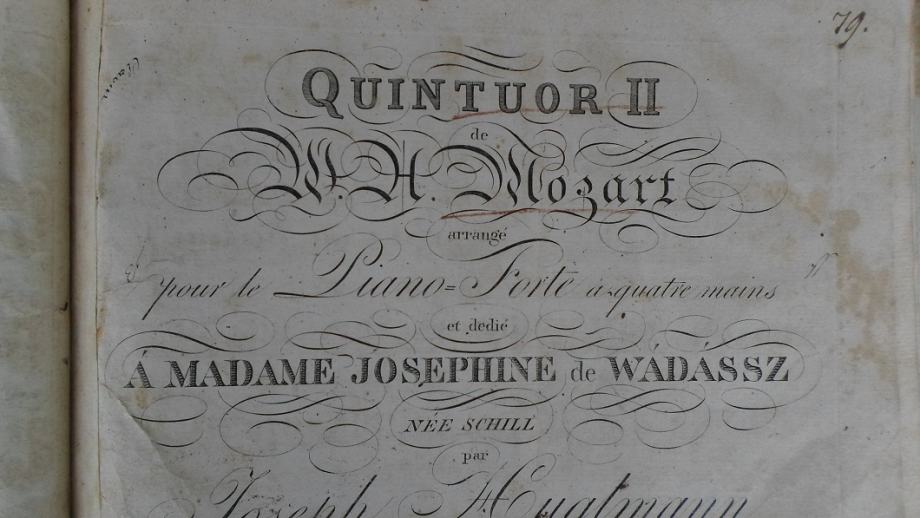 79.
QUINTUOR II
de
W. A. Mozart
arrangé
pour le Piano=Forte à quatre mains
et dedié
Á MADAME JOSEPHINE de WÁDÁSSZ
NÉE SCHILL
par
Joseph